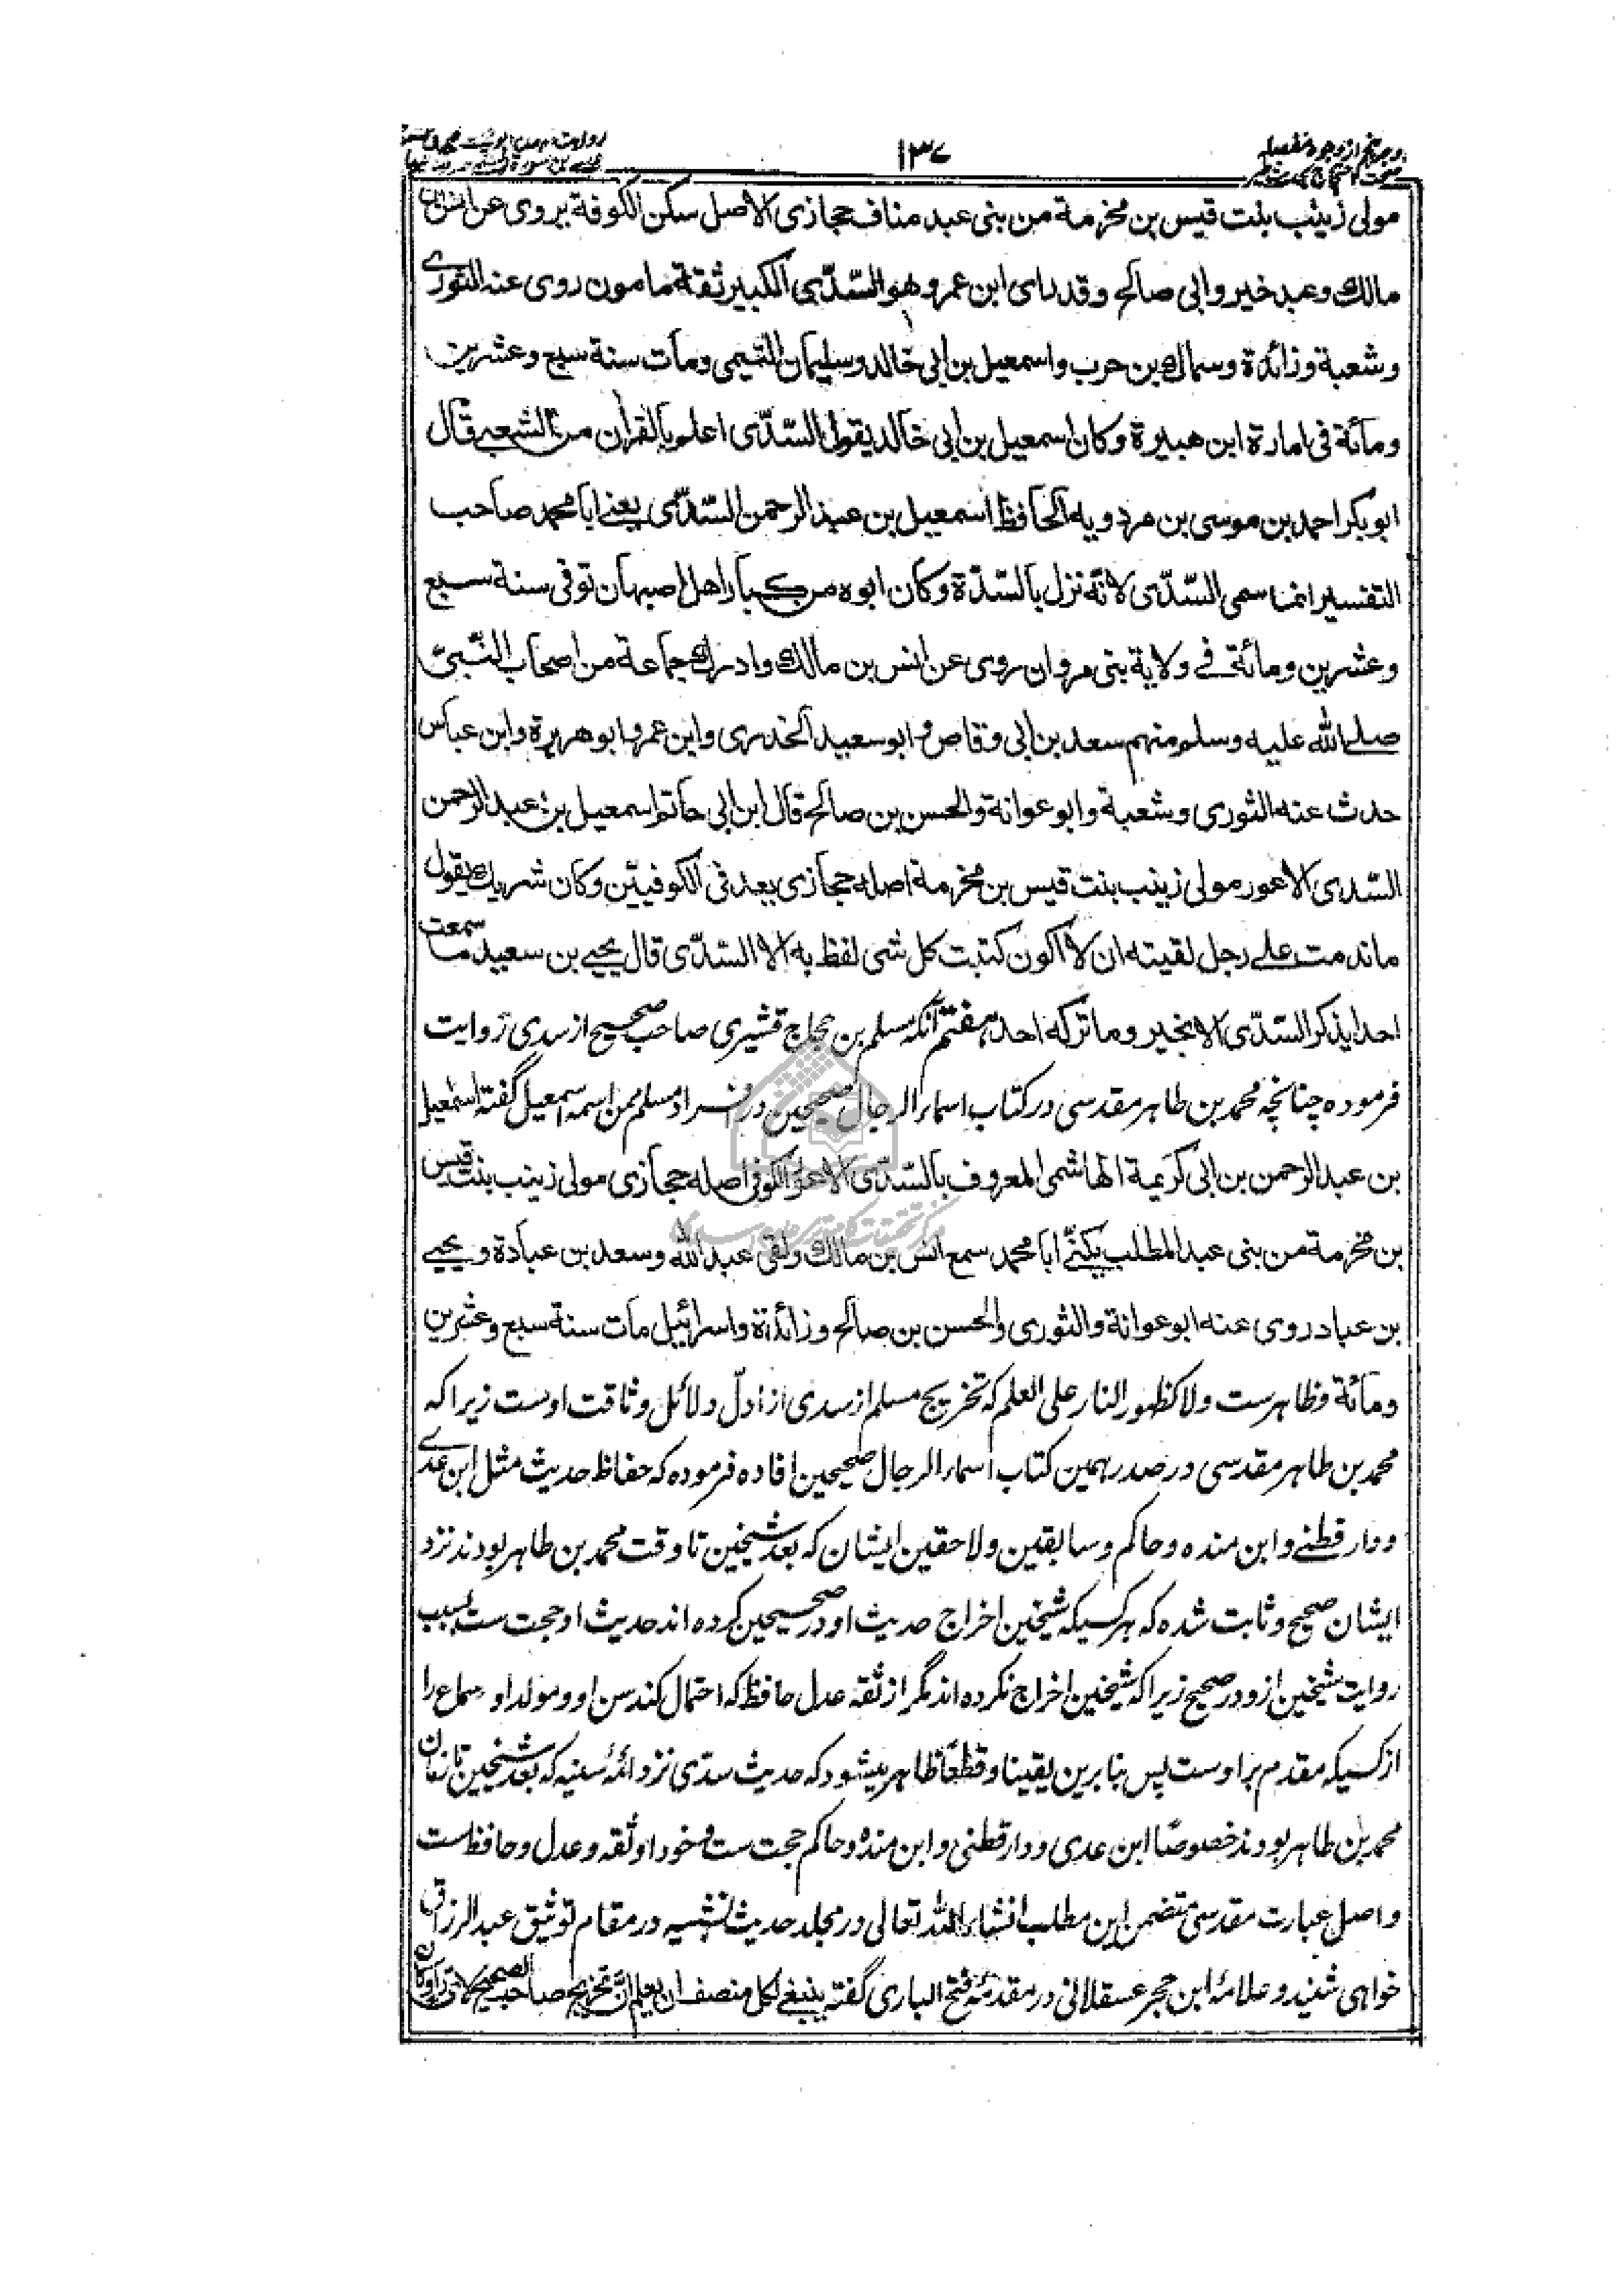 ۱۳۷
مولی زینب بنت قیس بن مخرمة من بنی عبد مناف حجازی الاصل سکن الکوفة یروی عن انس بن
مالک وعبد خیر وابی صالح وقد رای ابن عمر وهو السّدّی الکبیر ثقة مامون روی عنه الثوری
وشعبة وزائدة وسماک بن حرب واسمعیل بن ابی خالد وسلیمان التیمی ومات سنة سبع وعشرین
ومائة فی امارة ابن هبیرة وکان اسمعیل بن ابی خالد یقول السّدّی اعلم بالقرآن من الشعبی قال
ابو بکر احمد بن موسی بن مردویه الحافظ اسمعیل بن عبد الرحمن السّدّی یعنی ابا محمد صاحب
التفسیر انما سمی السّدّی لانّه نزل بالسّدّة وکان ابوه من کبار اهل اصبهان توفی سنة سبع
وعشرین ومائة فی ولایة بنی مروان روی عن انس بن مالک وادرک جماعة من اصحاب النّبیّ
صلی الله علیه وسلم منهم سعد بن ابی وقاص وابو سعید الخدری وابن عمر وابو هریرة وابن عباس
حدث عنه الثوری وشعبة وابو عوانة والحسن بن صالح قال ابن ابی حاتم اسمعیل بن عبد الرحمن
السّدی الاعور مولی زینب بنت قیس بن مخرمة اصله حجازی یعد فی الکوفیّین وکان شریک یقول
ما ندمت علی رجل لقیته ان لا اکون کتبت کل شی لفظ به الا السّدّی قال یحیی بن سعید ما سمعت
احدا یذکر السّدّی الا بخیر وما ترکه احد هفتم آنکه مسلم بن حجاج قشیری صاحب صحیح از سدی روایت
فرموده چنانچه محمد بن طاهر مقدسی در کتاب اسماء الرجال صحیحین در افراد مسلم ممن اسمه اسمعیل گفته اسمعیل
بن عبد الرحمن بن ابی کریمة الهاشمی المعروف بالسّدّی الاعور الکوفی اصله حجازی مولی زینب بنت قیس
بن مخرمة من بنی عبد المطلب یکنّی ابا محمد سمع انس بن مالک ولقی عبد الله وسعد بن عبادة ویحیی
بن عباد روی عنه ابو عوانة والثوری والحسن بن صالح وزائدة واسرائیل مات سنة سبع وعشرین
ومائة وظاهرست ولا کظهور النار علی العلم که تخریج مسلم از سدی از ادلّ دلائل وثاقت اوست زیرا که
محمد بن طاهر مقدسی در صدر همین کتاب اسماء الرجال صحیحین افاده فرموده که حفاظ حدیث مثل ابن عدی
ودار قطنی وابن منده وحاکم وسابقین ولاحقین ایشان که بعد شیخین تا وقت محمد بن طاهر بودند نزد
ایشان صحیح وثابت شده که هر کسیکه شیخین اخراج حدیث او در صحیحین کرده اند حدیث او حجت ست بسبب
روایت شیخین ازو در صحیح زیرا که شیخین اخراج نکرده اند مگر از ثقه عدل حافظ که احتمال کند سن او ومولد او سماع را
از کسیکه مقدم بر اوست پس بنا برین یقینا وقطعًا ظاهر میشود که حدیث سدّی نزد ائمّه سنیه که بعد شیخین تا زمان
محمد بن طاهر بودند خصوصًا ابن عدی ودار قطنی وابن منده وحاکم حجت ست وخود او ثقه وعدل وحافظ ست
واصل عبارت مقدسی متضمن این مطلب انشاء الله تعالی در مجلد حدیث تشبیه در مقام توثیق عبد الرزاق
خواهی شنید وعلامهٔ ابن حجر عسقلانی در مقدمهٔ فتح الباری گفته ینبغی لکل منصف ان یعلم انّ تخریج صاحب الصحیح لای راو کان